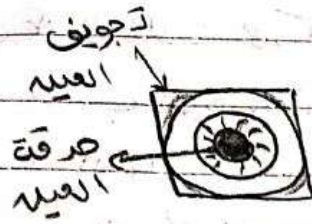 تجويف
العين
حدقة
العين